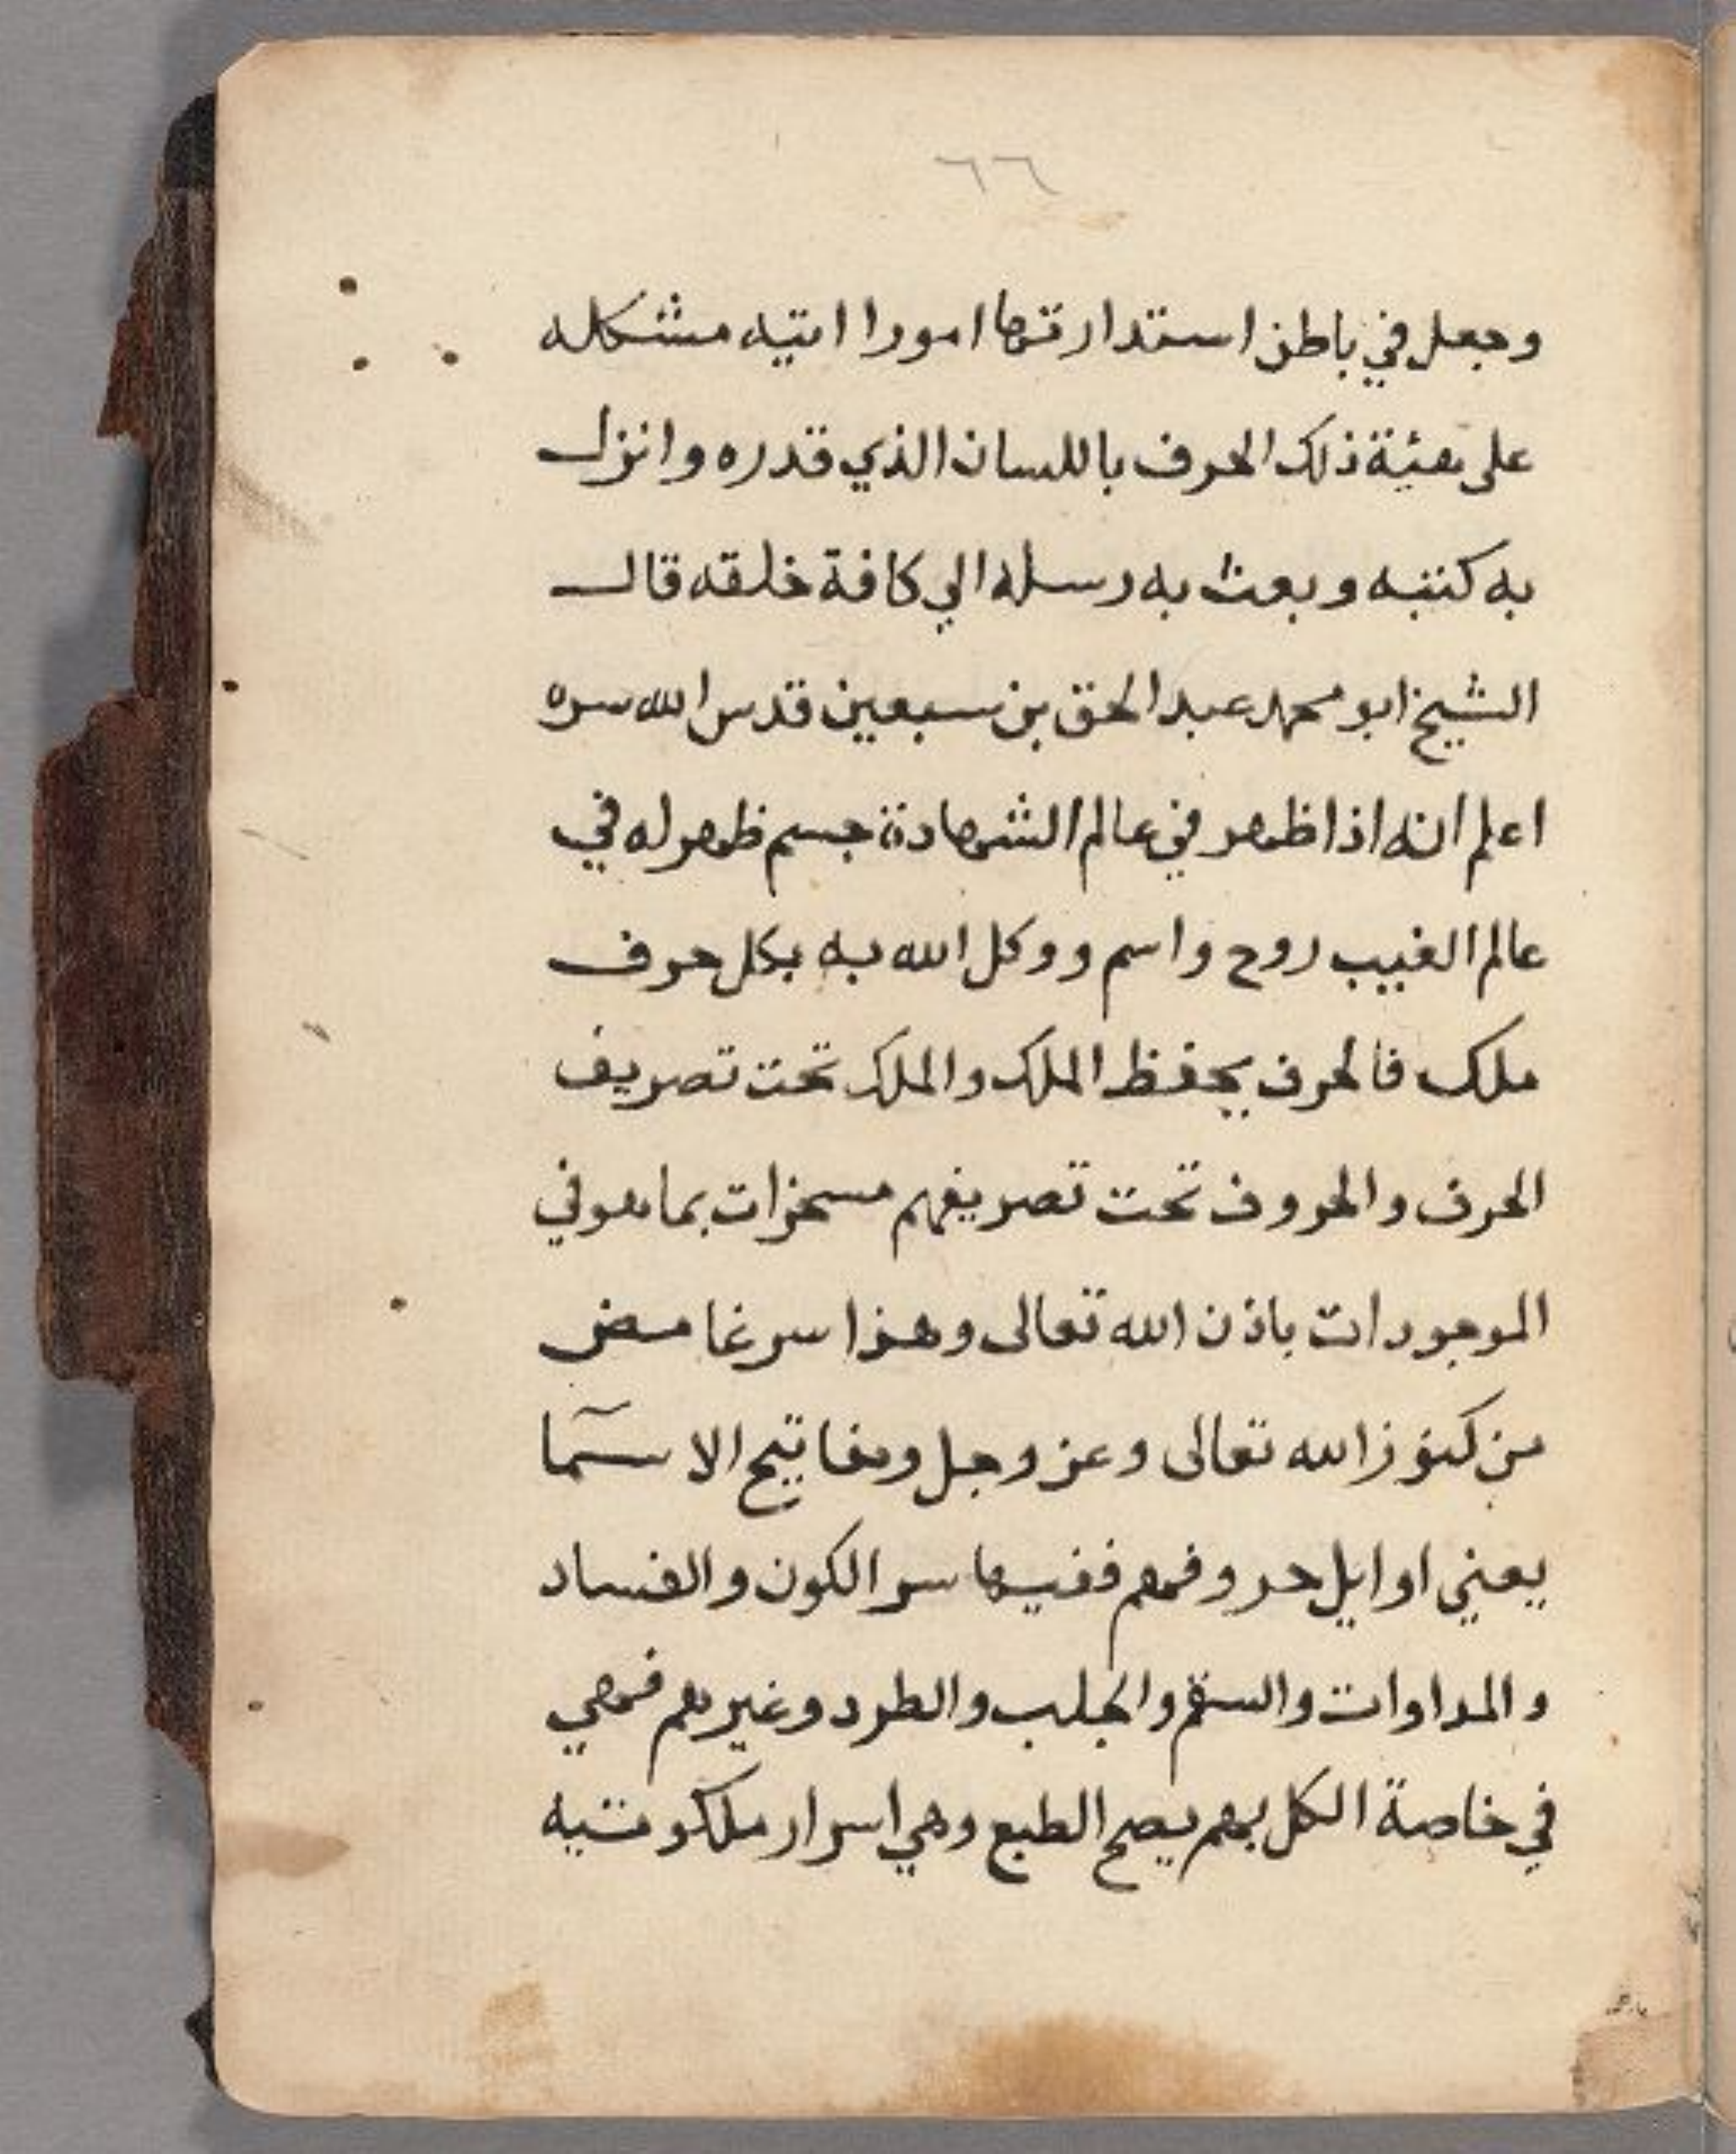 ٦٦
وجعل في باطن استدارتها امورا اتيه مشكله
على هيئة ذلك الحرف باللسان الذي قدره وانزل
به كتبه وبعث به رسله الي كافة خلقه قال
الشيخ ابو محمد عبد الحق بن سبعين قدس الله سره
اعلم انه اذا ظهر في عالم الشهادة جسم ظهر له في
عالم الغيب روح واسم ووكل الله به بكل حرف
ملك فالحرف يحفظ الملك والملك تحت تصريف
الحرف والحروف تحت تصريفهم مسخرات بما هو في
الموجودات باذن الله تعالى وهذا سر غامض
من كنوز الله تعالى وعز وجل ومفاتيح الاسمآ
يعني اوايل حروفهم ففيها سر الكون والفساد
والمداوات والسقم والجلب والطرد وغيرهم فهي
في خاصة الكل بهم يصح الطبع وهي اسرار ملكوتيه